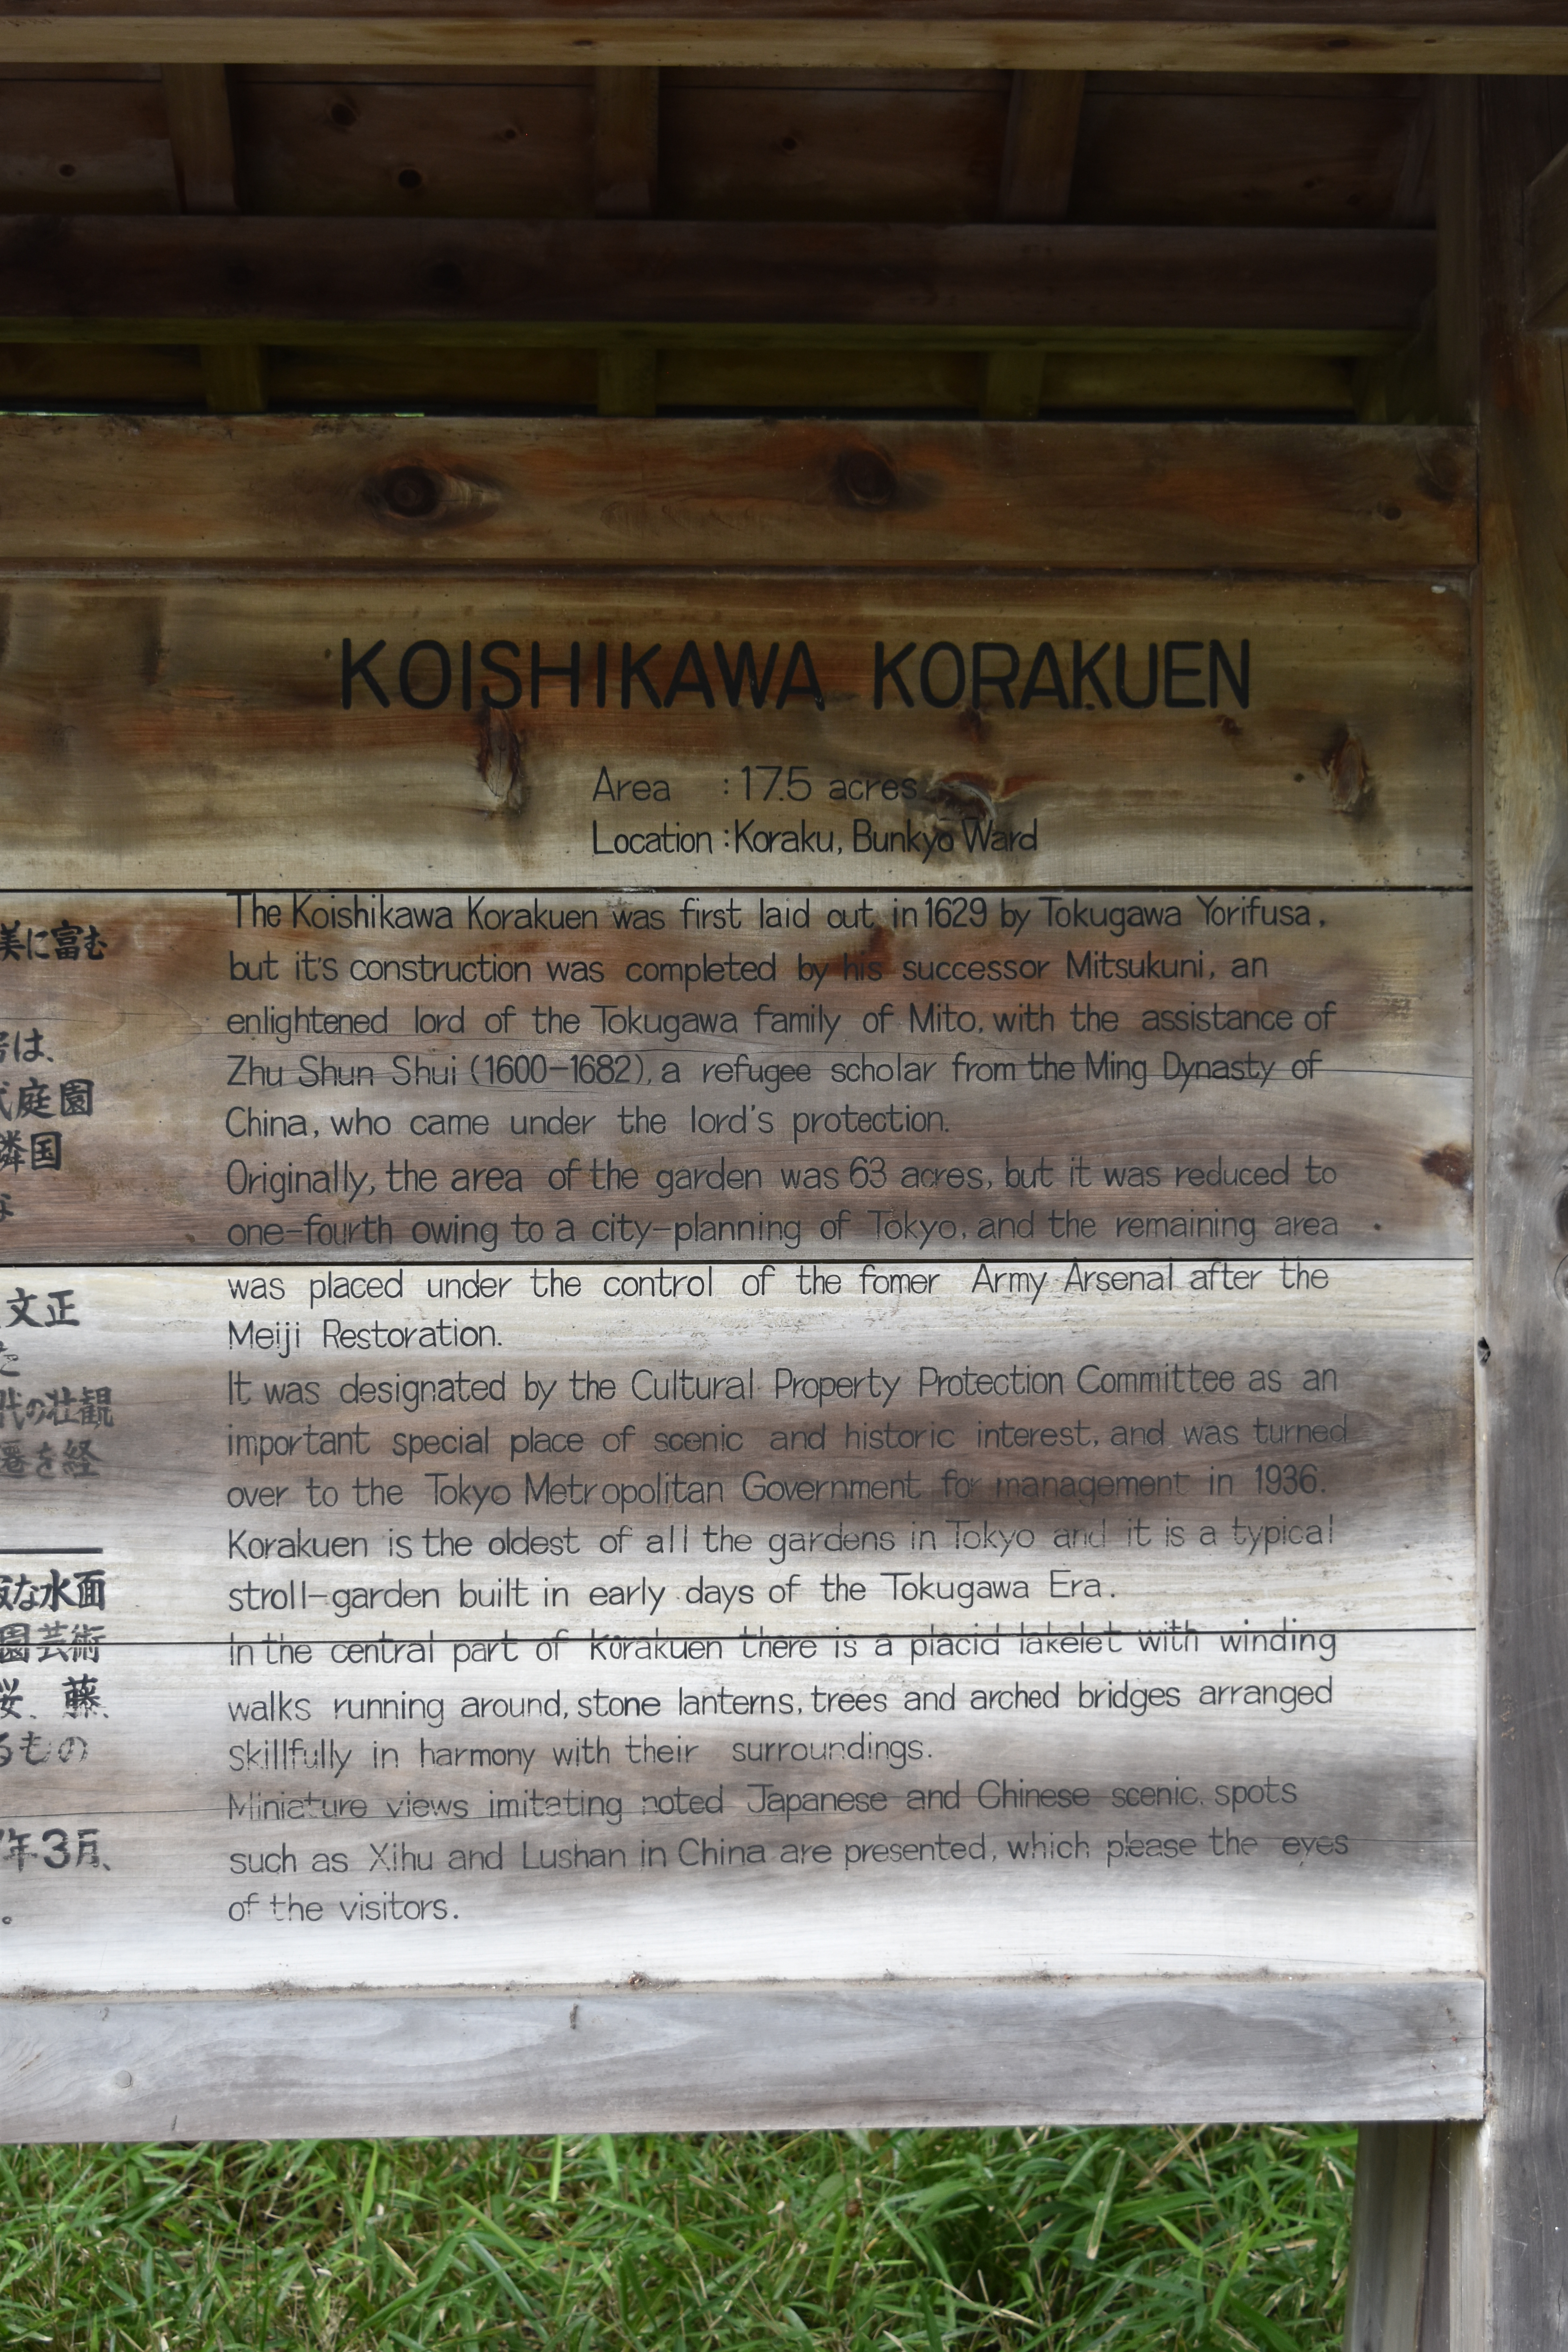 KOISHIKAWA KORAKUEN
Area : 17.5 acres
Location : Koraku, Bunkyo Ward
The Koishikawa Korakuen was first laid out in 1629 by Tokugawa Yorifusa,
but it's construction was completed by his successor Mitsukuni, an
enlightened lord of the Tokugawa family of Mito, with the assistance of
Zhu Shun Shui (1600-1682), a refugee scholar from the Ming Dynasty of
China, who came under the lord's protection.
Originally, the area of the garden was 63 acres, but it was reduced to
one-fourth owing to a city-planning of Tokyo, and the remaining area
was placed under the control of the fomer Army Arsenal after the
Meiji Restoration.
It was designated by the Cultural Property Protection Committee as an
important special place of scenic and historic interest, and was turned
over to the Tokyo Metropolitan Government for management in 1936.
Korakuen is the oldest of all the gardens in Tokyo and it is a typical
stroll-garden built in early days of the Tokugawa Era.
In the central part of Korakuen there is a placid lakelet with winding
walks running around, stone lanterns, trees and arched bridges arranged
skillfully in harmony with their surroundings.
Miniature views imitating noted Japanese and Chinese scenic spots
such as Xihu and Lushan in China are presented, which please the eyes
of the visitors.
美に富む
は、
庭園
隣国
な
文正
た
代の壮観
遷を経
な水面
園芸術
桜、藤、
るもの
年3月、
。